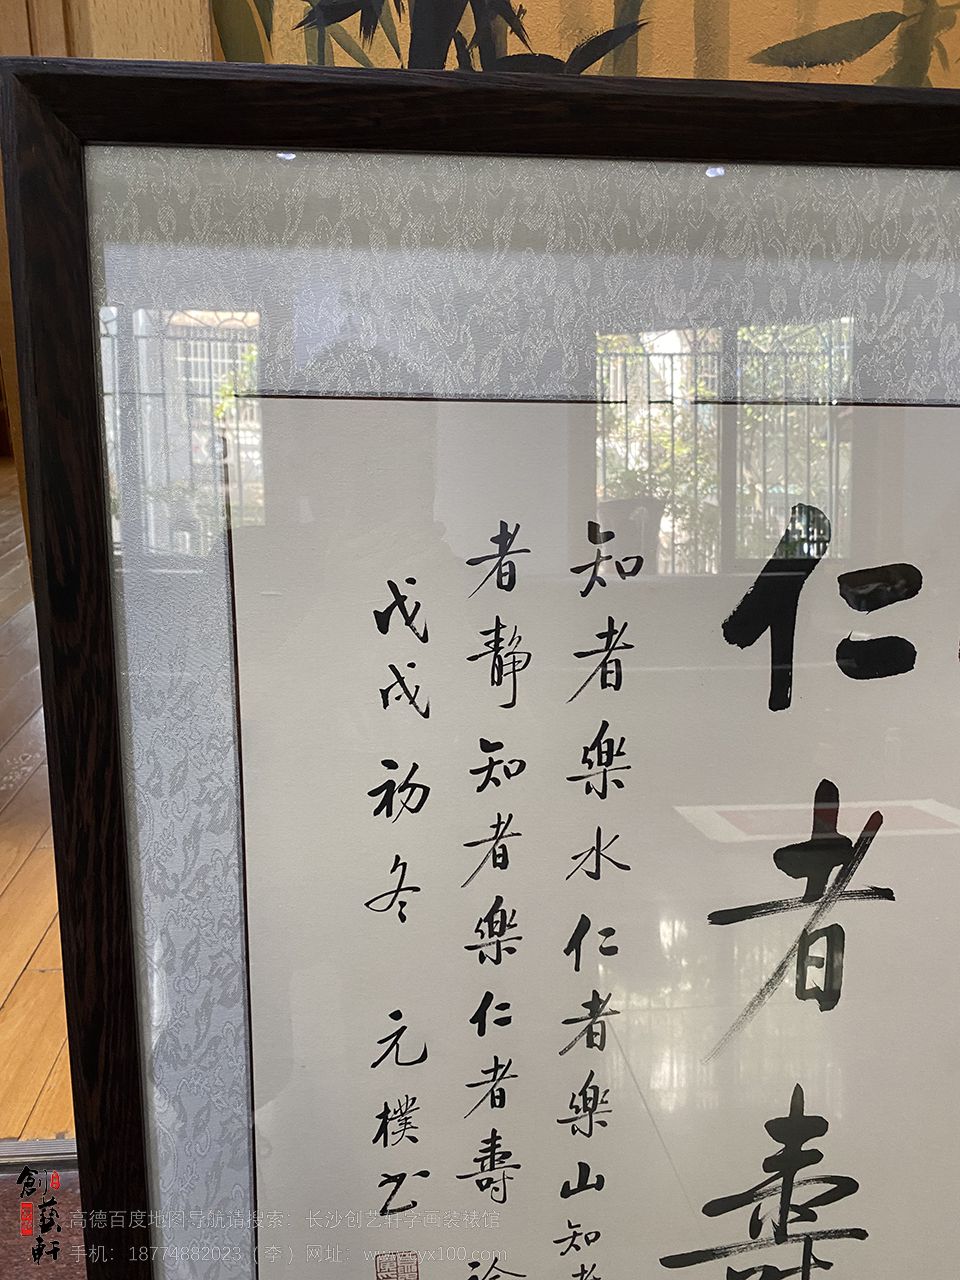 仁者壽
知者樂水仁者樂山知者
者靜知者樂仁者壽
戊戌初冬 元樸书
創藝軒
高德百度地图导航请搜索：长沙创艺轩字画装裱馆
手机：18774882023（李）网址：www.cyx100.com